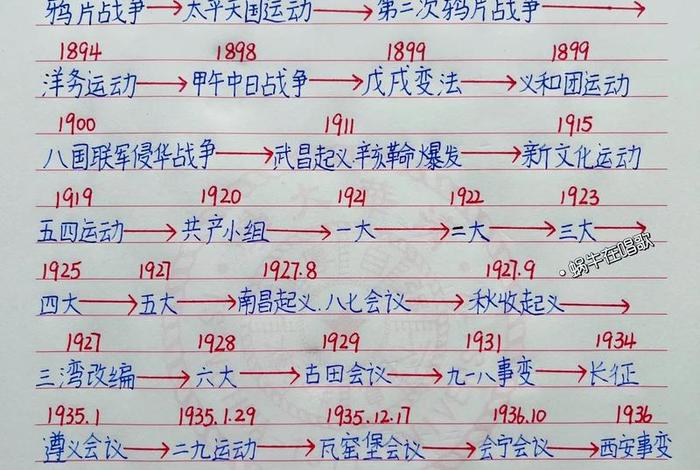 鸦片战争→太平天国运动→第二次鸦片战争→
1894 1898 1899 1899
洋务运动→甲午中日战争→戊戌变法→义和团运动
1900 1911 1915
八国联军侵华战争→武昌起义.辛亥革命爆发→新文化运动
1919 1920 1921 1922 1923
五四运动→共产小组→一大→二大→三大→
·蜗牛在唱歌
1925 1927 1927.8 1927.9
四大→五大→南昌起义.八七会议→秋收起义→
1927 1928 1929 1931 1934
三湾改编→六大→古田会议→九一八事变→长征
1935.1 1935.1.29 1935.12.17 1936.10 1936
遵义会议→二九运动→瓦窑堡会议→会宁会议→西安事变